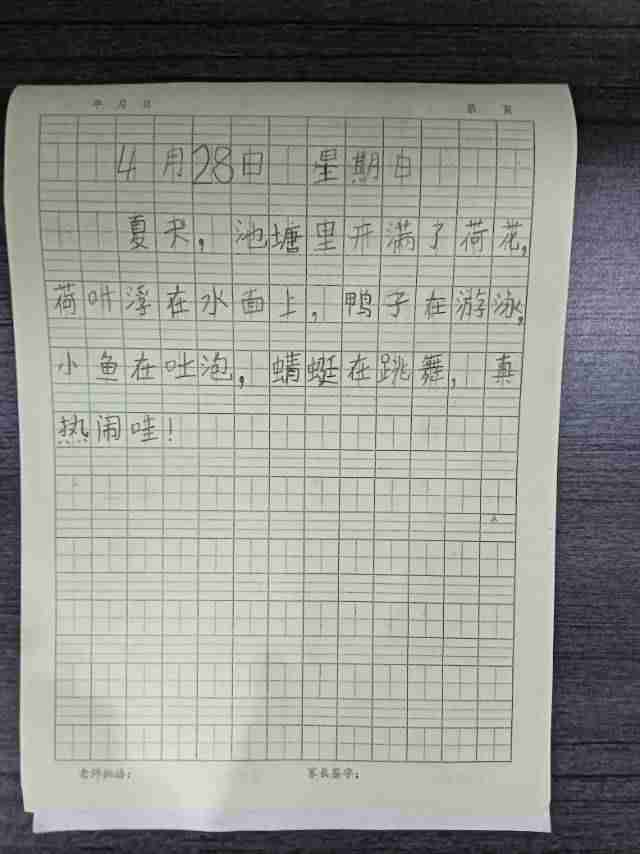 年 月 日 第 页
4月28日 星期日
夏天，池塘里开满了荷花，
荷叶浮在水面上，鸭子在游泳，
小鱼在吐泡，蜻蜓在跳舞，真
热闹哇！
老师批语： 家长签字：